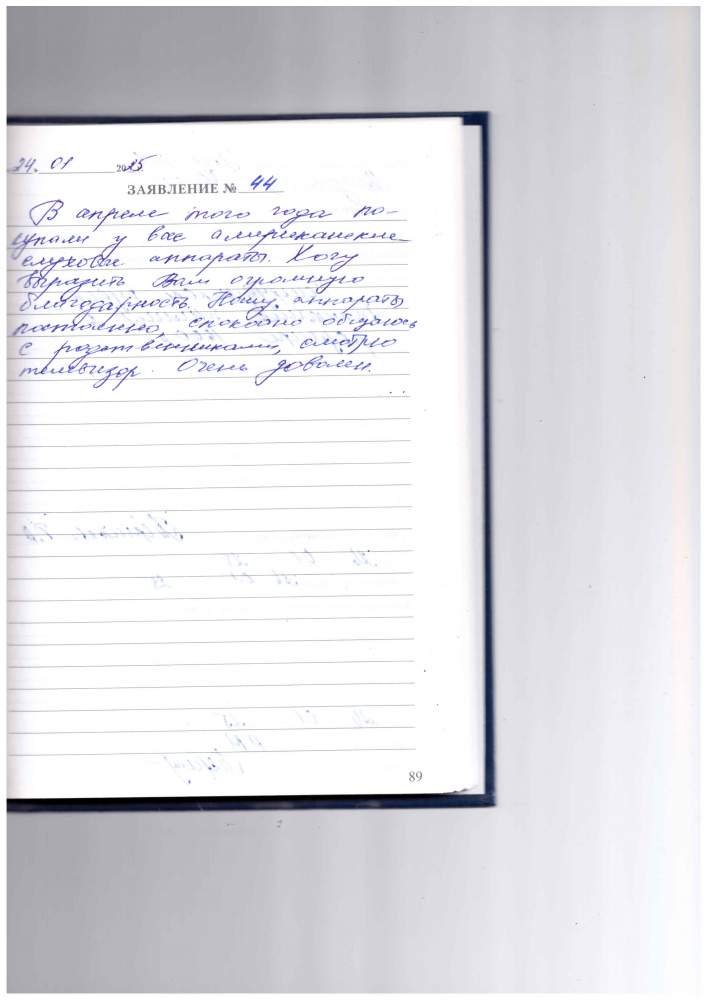 24. 01 2025.
ЗАЯВЛЕНИЕ № 44
В апреле того года по-
купали у вас американские
слуховые аппараты. Хочу
выразить Вам огромную
благодарность. Ношу аппараты
постоянно, спокойно общаюсь
с родственниками, смотрю
телевизор. Очень доволен.
89